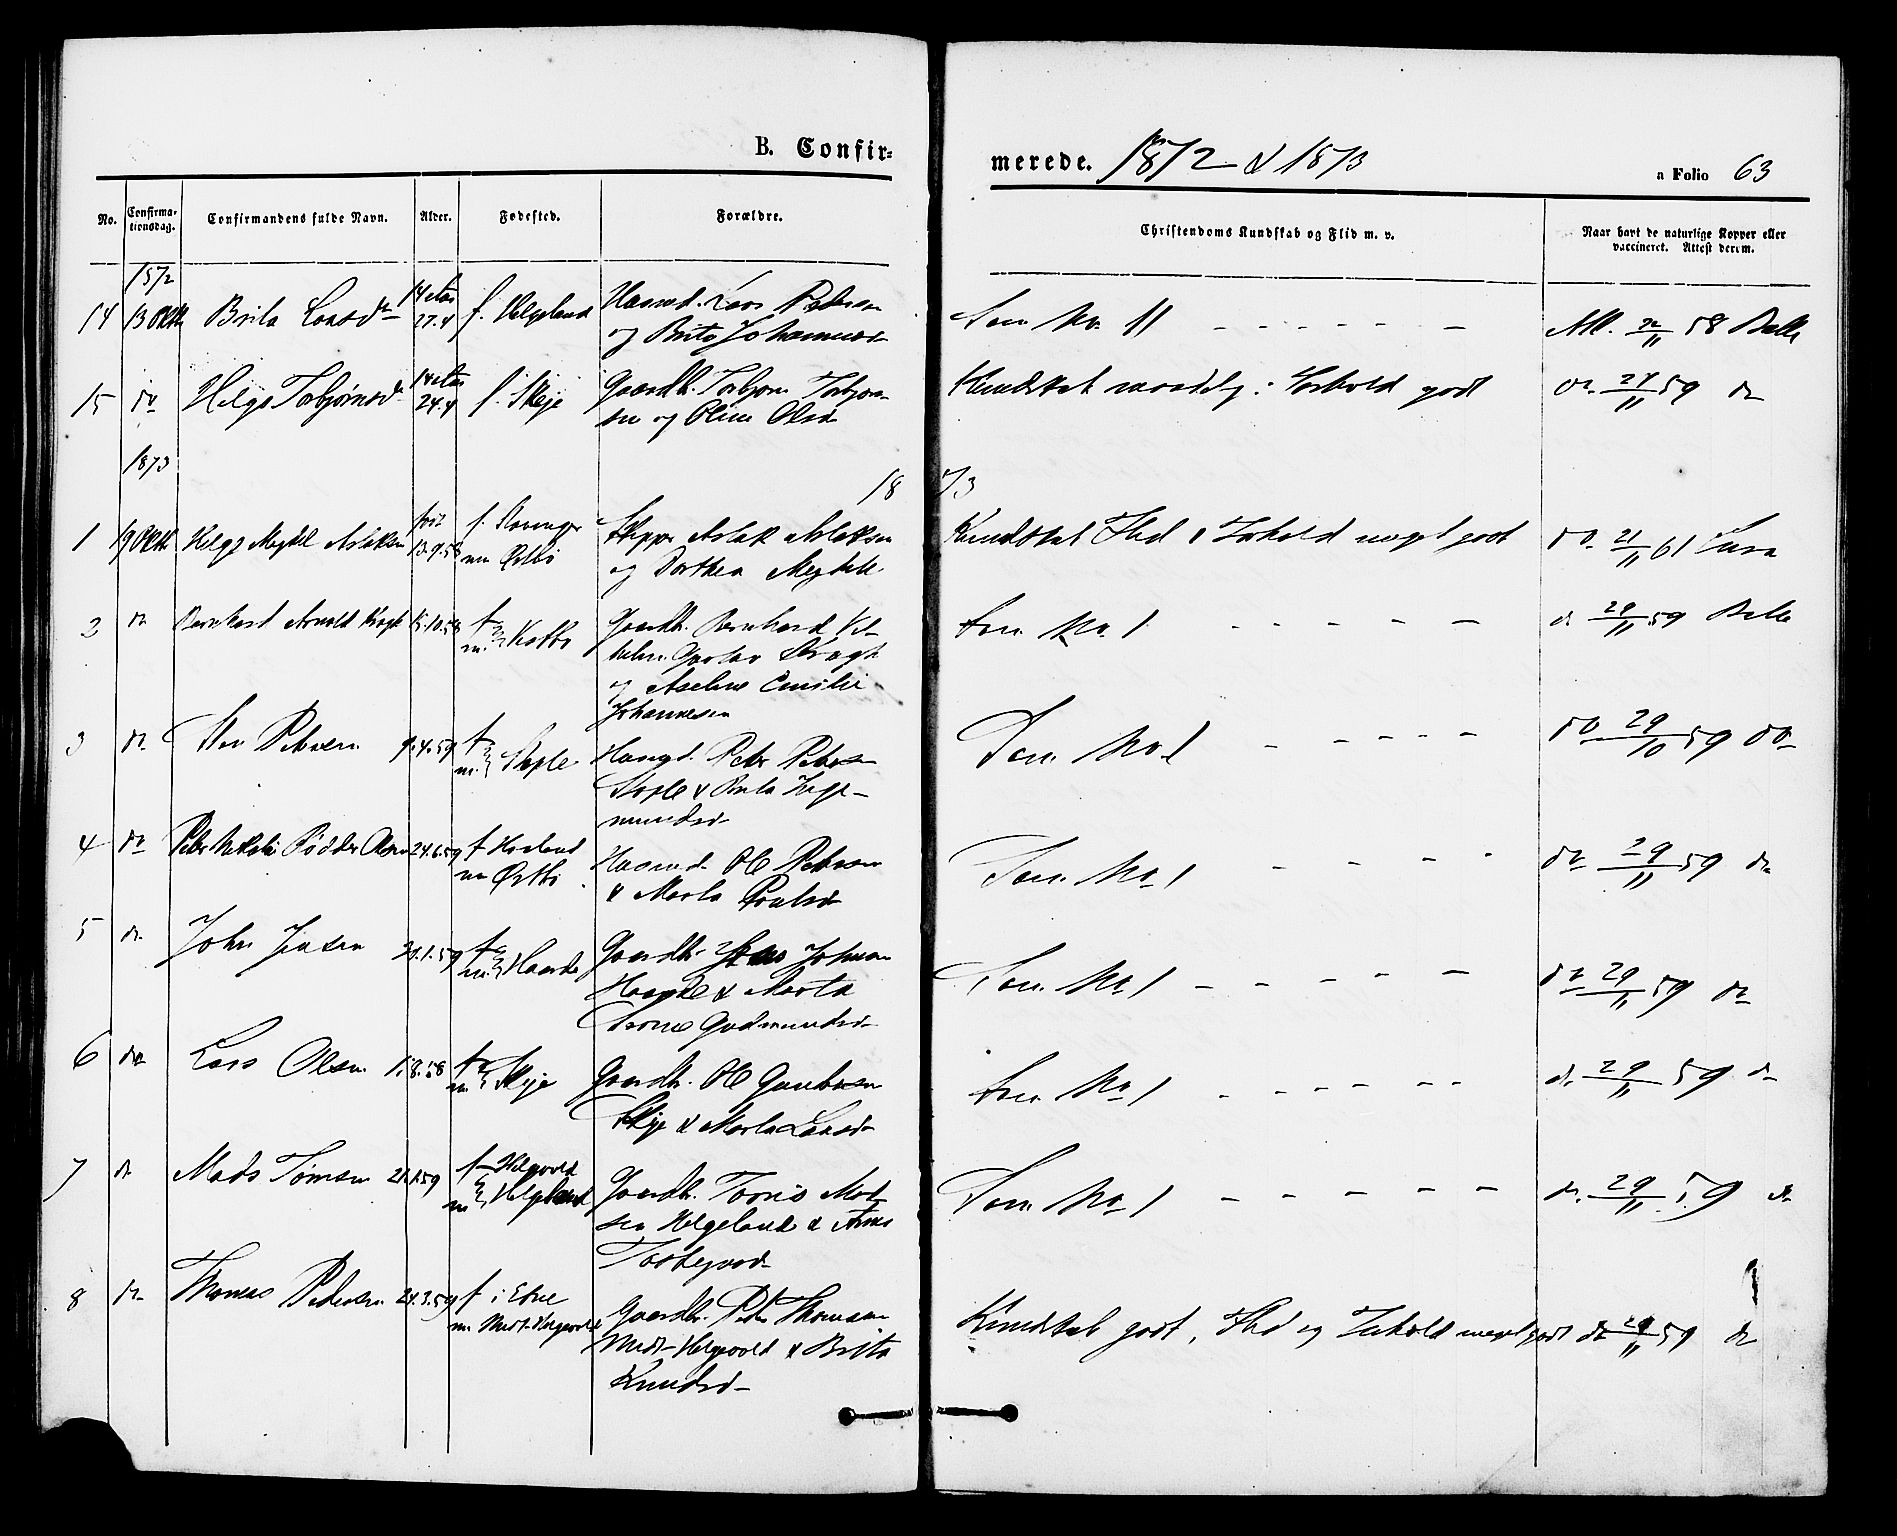 B. Confir-
merede. 1872 & 1873
a Folio 63
No. Confirma-tionsdag. Confirmandens fulde Navn. Alder. Fødested. Forældre. Christendoms Kundskab og Flid m. v. Naar havt de naturlige Kopper eller vaccineret. Attest derom.
1872
14 13 Oktb Brita Larsdr 14 Aar 27.4 f. Helgeland Huusmd. Lars Pedersen
og Brita Johannesdr
Som No 11 - - - - - - Att. 22/11 58 Balle
15 do Helga Torbjørnsdr 14 Aar 24.4 f. Skeje Gaardbr. Torbjørn Torbjørn-
sen og Oline Olsdr
Kundskab maadelig: Forhold godt do. 27/11 59 do
1873
18 73
1 19 Oktb Helge Aslaksen født 13.9.58 f. Stavanger
m Ørtbø
Skipper Aslak Aslaksen
og Dorthea
Kundskab Flid & Forhold meget godt do 21/11 61
2 do Bernhard Arnold Krogh 15.10.58 f m
Gaardbr. Bernhard Vil-
helm Gustav Krogh
og Aseline Emilie
Johannesen
Som No 1 - - - - - do 29/11 59 Balle
3 do Petersen 9.4.59 f m Stople Huusmd. Peter Petersen
Stople & Berta Inge-
mundsdr
Som No 1 - - - - - do 29/10 59 do
4 do Peder Nikolai Olsen 24.6.59 f
m Ørtbø
Huusmd. Ole Petersen
& Marta Poulsdr
Som No 1 - - - - do 29/11 59 do
5 do John Jensen 31.1.59 f m Haarde Gaardbr. Jens Johnsen
Haarde & Marta
Serine Gudmundsdr
Som No 1 - - - - - do 29/11 59 do
6 do Lars Olsen 1.8.58 f m Skeje Gaardbr. Ole Gunbersen
Skeje & Marta Larsdr
Som No 1 - - - - - do 29/11 59 do
7 do Mads Tørresen 21.1.59 f Helgevold
m Helgeland
Gaardbr. Torris Mad-
sen Helgeland & Anna
Som No 1 - - - - - do. 29/11 59 do
8 do Thomas Pedersen 21.3.59 f i Etne
m Midt-Helgevold
Gaardbr. Peder Thomsen
Midt-Helgevold & Brita
Knudsdr
Kundskab godt, Flid og Forhold meget godt do 29/11 59 do